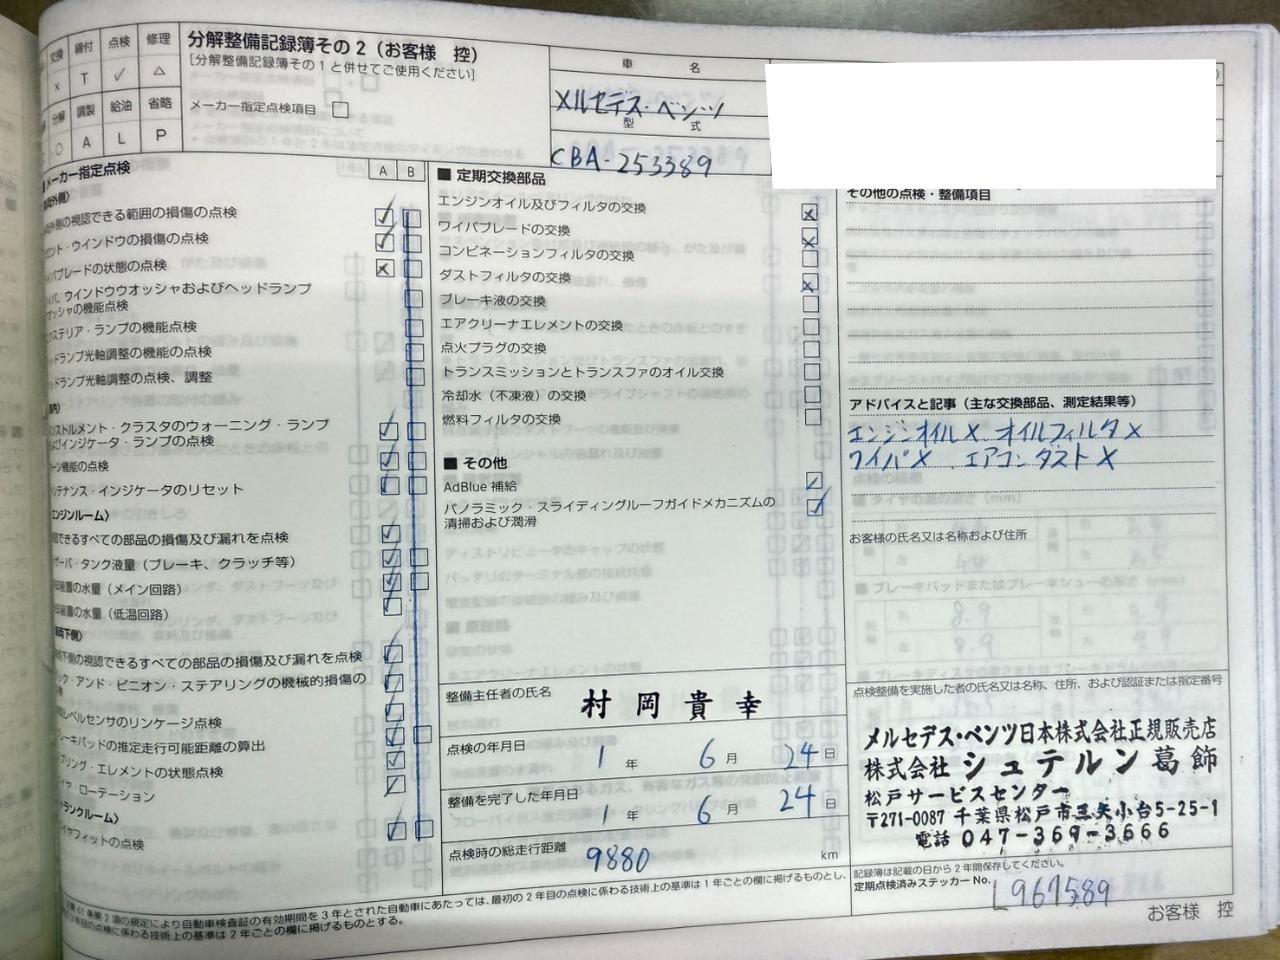 交換 締付 点検 修理
× T ✓ △
分解 調整 給油 省略
○ A L P
分解整備記録簿その2(お客様 控)
[分解整備記録簿その1と併せてご使用ください]
メーカー指定点検項目 □
車 名
メルセデス・ベンツ
型 式
CBA-253389
メーカー指定点検
A B
外側の視認できる範囲の損傷の点検
フロント・ウインドウの損傷の点検
ワイパブレードの状態の点検
ウインドウウオッシャおよびヘッドランプ
ウオッシャの機能点検
エクステリア・ランプの機能点検
ヘッドランプ光軸調整の機能の点検
ヘッドランプ光軸調整の点検、調整
インストルメント・クラスタのウォーニング・ランプ
およびインジケータ・ランプの点検
ホーン機能の点検
メンテナンス・インジケータのリセット
エンジンルーム〉
できるすべての部品の損傷及び漏れを点検
リザーバ・タンク液量(ブレーキ、クラッチ等)
冷却装置の水量(メイン回路)
冷却装置の水量(低温回路)
車両下側〉
下側の視認できるすべての部品の損傷及び漏れを点検
ラック・アンド・ピニオン・ステアリングの機械的損傷の
レベルセンサのリンケージ点検
ブレーキパッドの推定走行可能距離の算出
スプリング・エレメントの状態点検
タイヤ ローテーション
トランクルーム〉
タイヤフィットの点検
■ 定期交換部品
エンジンオイル及びフィルタの交換
ワイパブレードの交換
コンビネーションフィルタの交換
ダストフィルタの交換
ブレーキ液の交換
エアクリーナエレメントの交換
点火プラグの交換
トランスミッションとトランスファのオイル交換
冷却水(不凍液)の交換
燃料フィルタの交換
■ その他
AdBlue 補給
パノラミック・スライディングルーフガイドメカニズムの
清掃および潤滑
整備主任者の氏名 村岡貴幸
点検の年月日 1年 6月 24日
整備を完了した年月日 1年 6月 24日
点検時の総走行距離 9880 km
その他の点検・整備項目
アドバイスと記事(主な交換部品、測定結果等)
エンジンオイル× オイルフィルタ×
ワイパ× エアコンダスト×
お客様の氏名又は名称および住所
点検整備を実施した者の氏名又は名称、住所、および認証または指定番号
メルセデス・ベンツ日本株式会社正規販売店
株式会社 シュテルン葛飾
松戸サービスセンター
〒271-0087 千葉県松戸市三矢小台5-25-1
電話 047-369-3666
記録簿は記載の日から2年間保存してください。
定期点検済みステッカー No. L967589
条第2項の規定により自動車検査証の有効期間を3年とされた自動車にあたっては、最初の2年目の点検に係わる技術上の基準は1年ごとの欄に掲げるものとし、
の点検に係わる技術上の基準は2年ごとの欄に掲げるものとする。
お客様 控